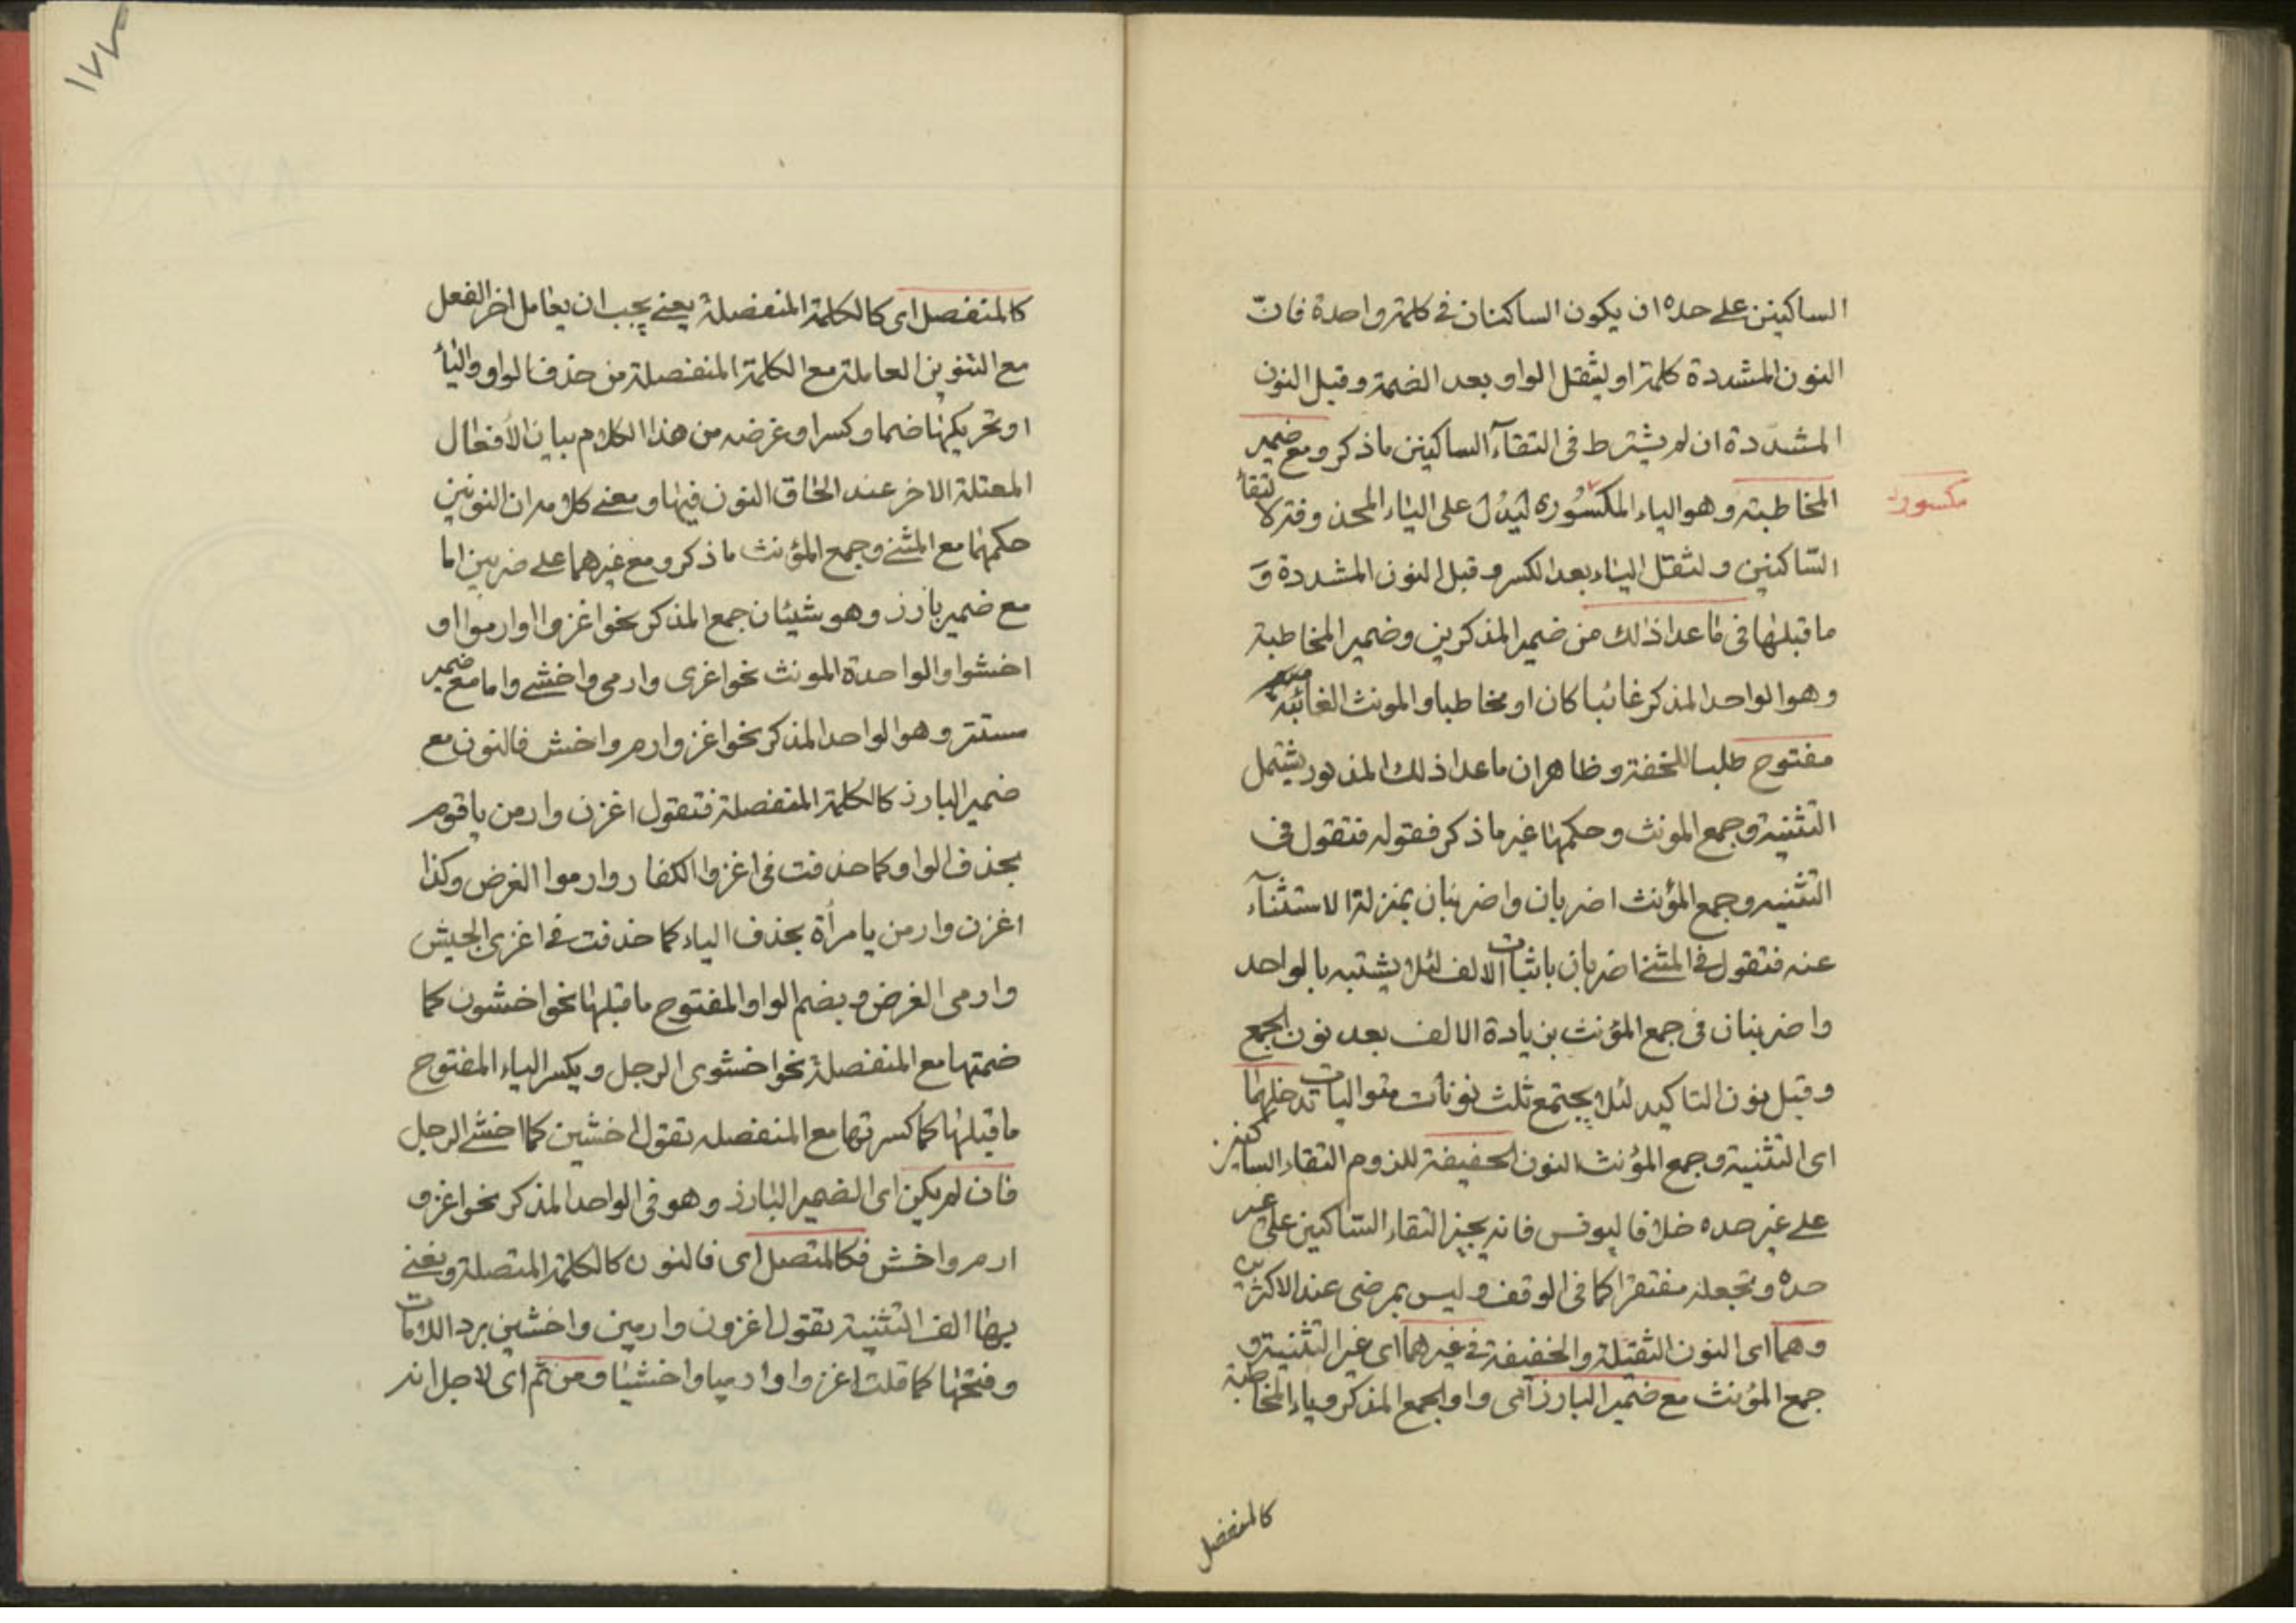 الساكنين على حده ان يكون الساكنان في كلمة واحدة فانّ
النون المشددة كلمة او لثقل الواو بعد الضمة وقبل النون
المشددة ان لم يشترط في التقآء الساكنين ما ذكر ومع ضمير
المخاطبة وهو الياء المكسُوره ليَدُل على الياء المحذوفة لالتقآء
مكسورة
السّاكنين ولثقل الياء بعد الكسر وقبل النون المشددة وَ
ما قبلها في ما عدا ذلك من ضمير المذكرين وضمير المخاطبة
وهو الواحد المذكر غائبا كان او مخاطبا والمونث الغائبة
مفتوح طلبا للخفة وظاهر ان ماعدا ذلك المذكور يشتمل
التثنية وجمع المونث وحكمها غير ما ذكر فقوله فتقول في
التثنيه وجمع المؤنث اضربان واضربنان بمنزلة الاستثنآء
عنه فتقول في المثنى اضربان باثبات الالف لئلا يشتبه بالواحد
واضربنان في جمع المؤنث بزيادة الالف بعد نون الجمع
وقبل نون التاكيد لئلا يجتمع ثلث نونات متواليات تدخلهما
اى التثنية وجمع المؤنث النون الخفيفة للزوم التقاء الساكنين
على غير حده خلافا ليونس فانه يجيز التقاء السّاكنين على غير
حده ويجعله مفتقرا كما في الوقف وليس بمرضى عند الاكثرين
وهما اى النون الثقيلة والخفيفة في غيرهما اى غير التثنية و
جمع المؤنث مع ضمير البارز اى واو الجمع المذكر وياء المخاطبة
كالمنفصل
١٧٢
كالمنفصل اى كالكلمة المنفصلة يعنى يجب ان يعامل اخر الفعل
مع التنوين العاملة مع الكلمة المنفصلة من حذف الواو والياء
او تحريكهما ضما وكسرا وغرضه من هذا الكلام بيان الأفعال
المعتلة الاخر عند الحاق النون فيها ومعنى كلامه ان النونين
حكمهما مع المثنى وجمع المؤنث ما ذكر ومع غيرهما على ضربين اما
مع ضمير بارز وهو شيئان جمع المذكر نحو اغزوا وارموا او
اخشوا والواحدة المونث نحو اغزى وارمى واخشى واما مع ضمير
مستتر وهو الواحد المذكر نحو اغز وارم واخش فالنون مع
ضمير البارز كالكلمة المنفصلة فتقول اغزن وارمن ياقوم
بحذف الواو كما حذفت في اغزوا الكفار وارموا الغرض وكذا
اغزن وارمن يامرأة بحذف الياء كما حذفت في اغزى الجيش
وارمى الغرض وبضم الواو المفتوح ما قبلها نحو اخشون كما
ضمتها مع المنفصلة نحو اخشوى الرجل ويكسر الياء المفتوح
ما قبلها كما كسرتها مع المنفصله تقول اخشين كما اخشى الرجل
فان لم يكن اى الضمير البارز وهو في الواحد المذكر نحو اغز و
ارم واخش فكالمتصل اى فالنون كالكلمة المتصلة ويعنى
بها الف التثنية تقول اغزون وارمين واخشين برد اللامات
وفتحها كما قلت اغزوا وارميا واخشيا ومن ثم اى لاجل انه